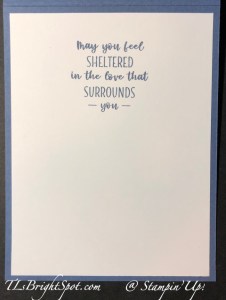 May you feel
SHELTERED
in the love that
SURROUNDS
— you —
TLsBrightSpot.com @ Stampin' Up!